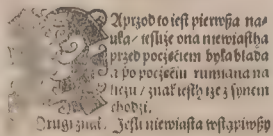 NAprzod to iest pierwsza na-
uka / iesliże ona niewiastha
przed poczęćim byłá bláda
á po poczęćiu rumiana ná
liczu / znak iesth iże z synem
chodzi.
Drugi znak. Jesli niewiastá wstąpiwszy